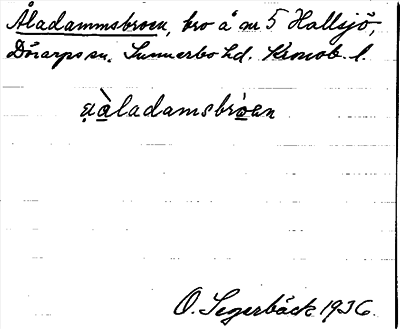 Åladammsbroen, bro å nr 5 Hallsjö,
Dörarps sn. Sunnerbo hd. Kronob. l.
åladamsbroen
O. Segerbäck 1936.